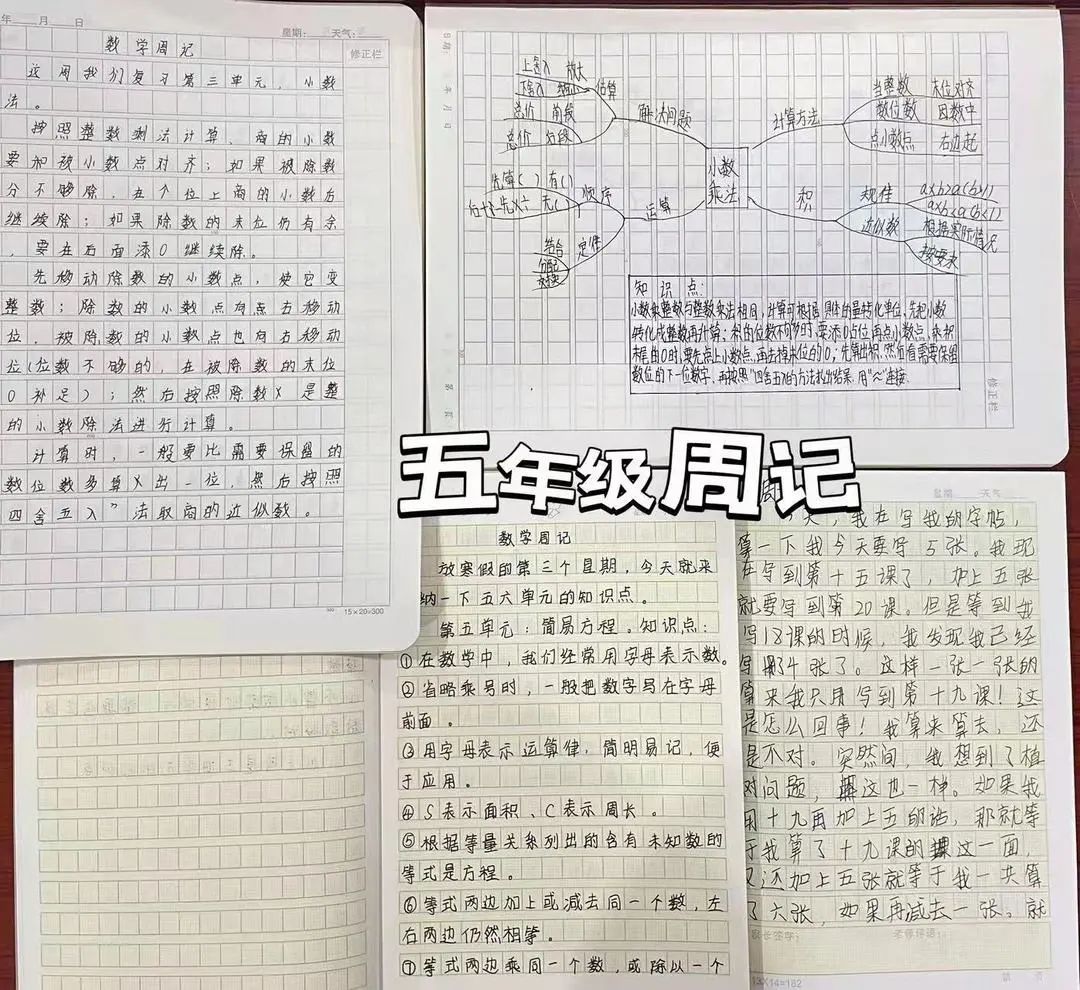 年 月 日 星期: 天气:
修正栏
数学周记
这周我们复习第三单元,小数
法。
按照整数乘法计算,商的小数
要和被小数点对齐;如果被除数
分不够除,在个位上商的小数后
继续除;如果除数的末位仍有余
,要在后面添0继续除。
先移动除数的小数点,使它变
整数;除数的小数点向右移动
位,被除数的小数点也向右移动
位(位数不够的,在被除数的末位
0补足);然后按照除数是整
的小数除法进行计算。
计算时,一般要比需要保留的
数位数多算出一位,然后按照
四舍五入”法取商的近似数。
15×20=300
小数
乘法
解决问题
估算
上舍入 放大
总价
总价 分段
运算
顺序
先算( ) 有( )
定律
结合
分配
计算方法
当整数 末位对齐
数位数 因数中
点小数点 右边起
积
规律
a×b>a(b>1)
a×b<a(b<1)
近似数
根据实际情况
按要求
知识点:
小数乘整数与整数乘法相同,计算可根据具体的量转化单位,先把小数
转化成整数再计算、积的位数不够时,要添0占位,再点小数点,乘积
末尾有0时,要先点上小数点,再去掉末位的0;先算出积,然后看需要保留
数位的下一位数字,再按照“四舍五入”的方法求出结果,用“≈”连接.
修正栏
五年级周记
数学周记
放寒假的第三个星期,今天就来
纳一下五六单元的知识点。
第五单元:简易方程。知识点:
①在数学中,我们经常用字母表示数。
②省略乘号时,一般把数字写在字母
前面。
③用字母表示运算律,简明易记,便
于应用。
④S表示面积、C表示周长。
⑤根据等量关系列出的含有未知数的
等式是方程。
⑥等式两边加上或减去同一个数,左
右两边仍然相等。
⑦等式两边乘同一个数,或除以一个
星期 天气
周
天,我在写我的字帖,
算一下我今天要写5张。我现
在写到第十五课了,加上五张
就要写到第20课。但是等到我
写18课的时候,我发现我已经
写4张了。这样一张一张的
算来我只用写到第十九课!这
是怎么回事!我算来算去,还
是不对。突然间,我想到了植
树问题,这也一样。如果我
用十九再加上五的话,那就等
于我算了十九课的这一面,
又还加上五张就等于我一共算
了六张,如果再减去一张。就
家长签字: 老师评语:
13×14=182